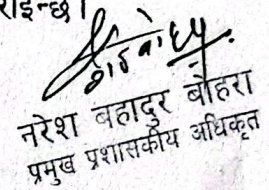 राइन्छ।
नरेश बहादुर बोहरा
प्रमुख प्रशासकीय अधिकृत